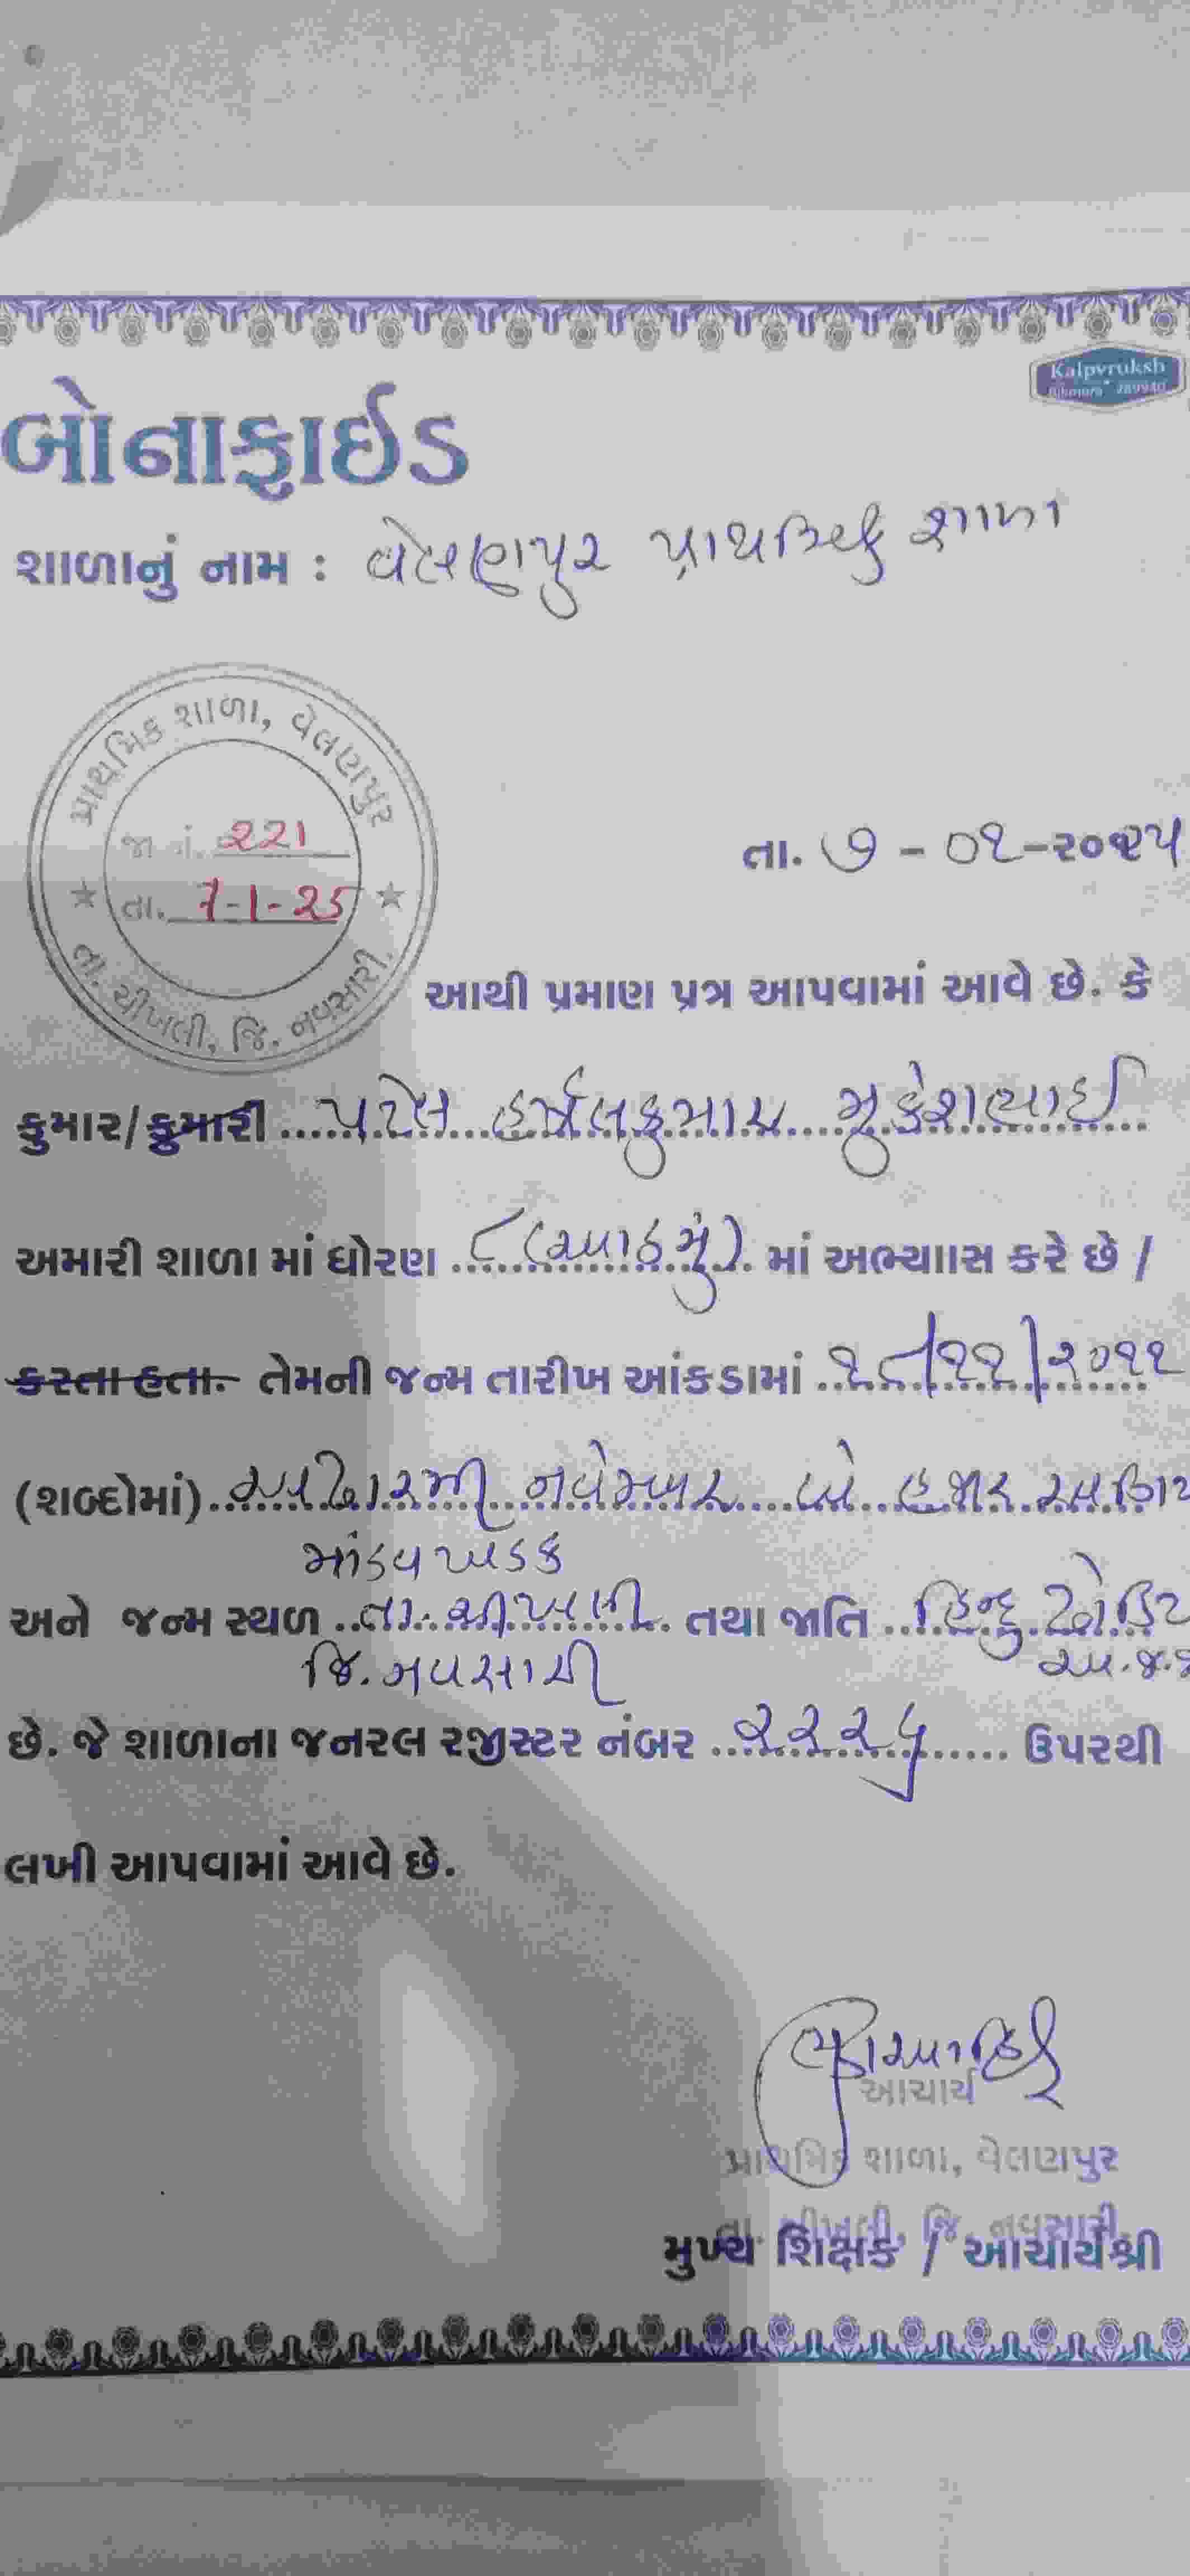 Kalpvruksh
બોનાફાઈડ
શાળાનું નામ : વેલણપુર પ્રાથમિક શાળા
પ્રાથમિક શાળા, વેલણપુર
જા નં. 221
તા. 7-1-25
તા. ચીખલી, જિ. નવસારી.
તા. ૭ - ૦૧ - ૨૦૨૫
આથી પ્રમાણ પત્ર આપવામાં આવે છે. કે
કુમાર/કુમારી પટેલ હર્ષલકુમાર મુકેશભાઈ
અમારી શાળા માં ધોરણ ૮ (આઠમું) માં અભ્યાાસ કરે છે /
કરતા હતા. તેમની જન્મ તારીખ આંકડામાં ૧૮/૧૧/૨૦૧૧
(શબ્દોમાં) અઢારમી નવેમ્બર બે હજાર અગિયાર
માંડવખડક
અને જન્મ સ્થળ તા. ચીખલી તથા જાતિ હિન્દુ ઢોડિયા
જિ. નવસારી અ.જ.જ
છે. જે શાળાના જનરલ રજીસ્ટર નંબર ૨૨૨૫ ઉપરથી
લખી આપવામાં આવે છે.
આચાર્ય
પ્રાથમિક શાળા, વેલણપુર
તા. ચીખલી, જિ. નવસારી.
મુખ્ય શિક્ષક / આચાર્યશ્રી